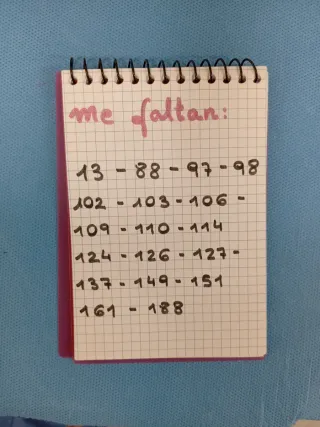 me faltan:
13 - 88 - 97 - 98
102 - 103 - 106 -
109 - 110 - 114
124 - 126 - 127 -
137 - 149 - 151
161 - 188